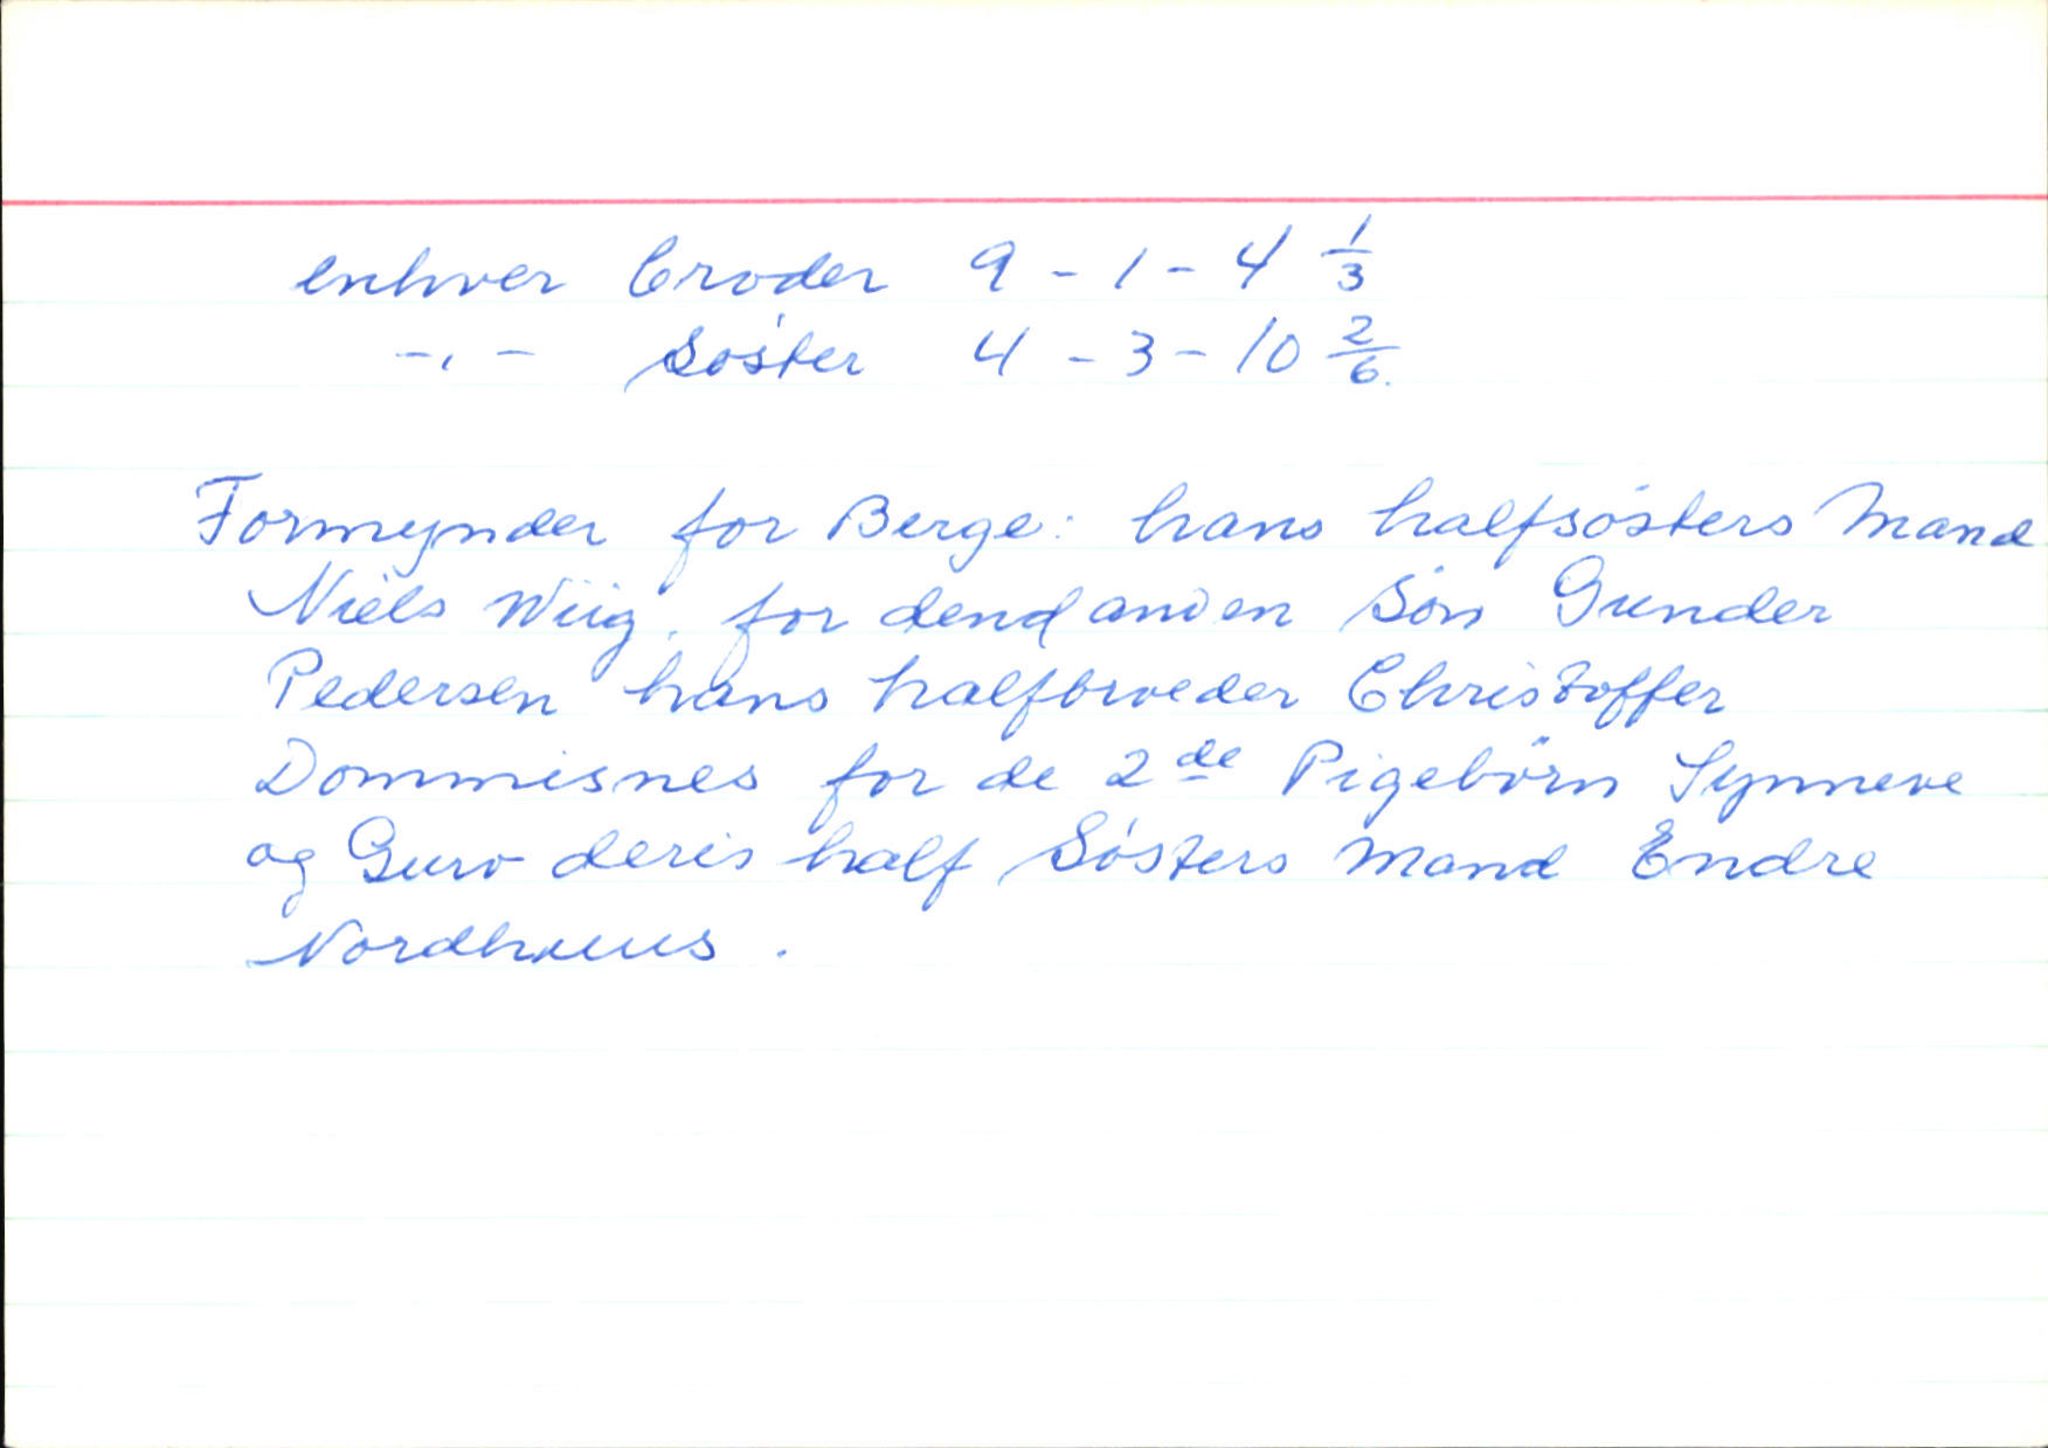 enhver broder 9 - 1 - 4 1/3
-,- Söster 4 - 3 - 10 2/6.
Formynder for Berge: hans halfsösters Mand
Niels Wiig, for dend anden Sön Gunder
Pedersen hans halfbroeder Christoffer
Dommisnes for de 2de Pigebörn Synneve
og Guro deris half Sösters Mand Endre
Nordhuus.